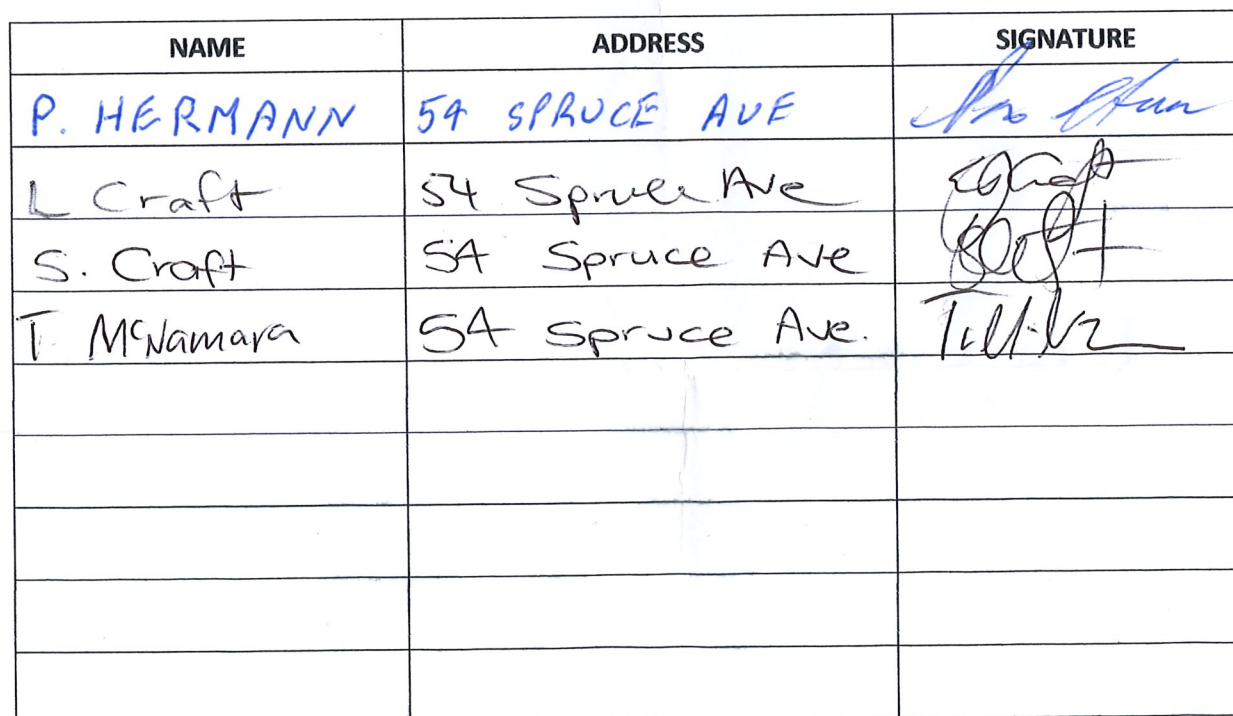 NAME ADDRESS SIGNATURE
P. HERMANN 54 SPRUCE AVE
L Craft 54 Spruce Ave
S. Craft 54 Spruce Ave
T McNamara 54 Spruce Ave.